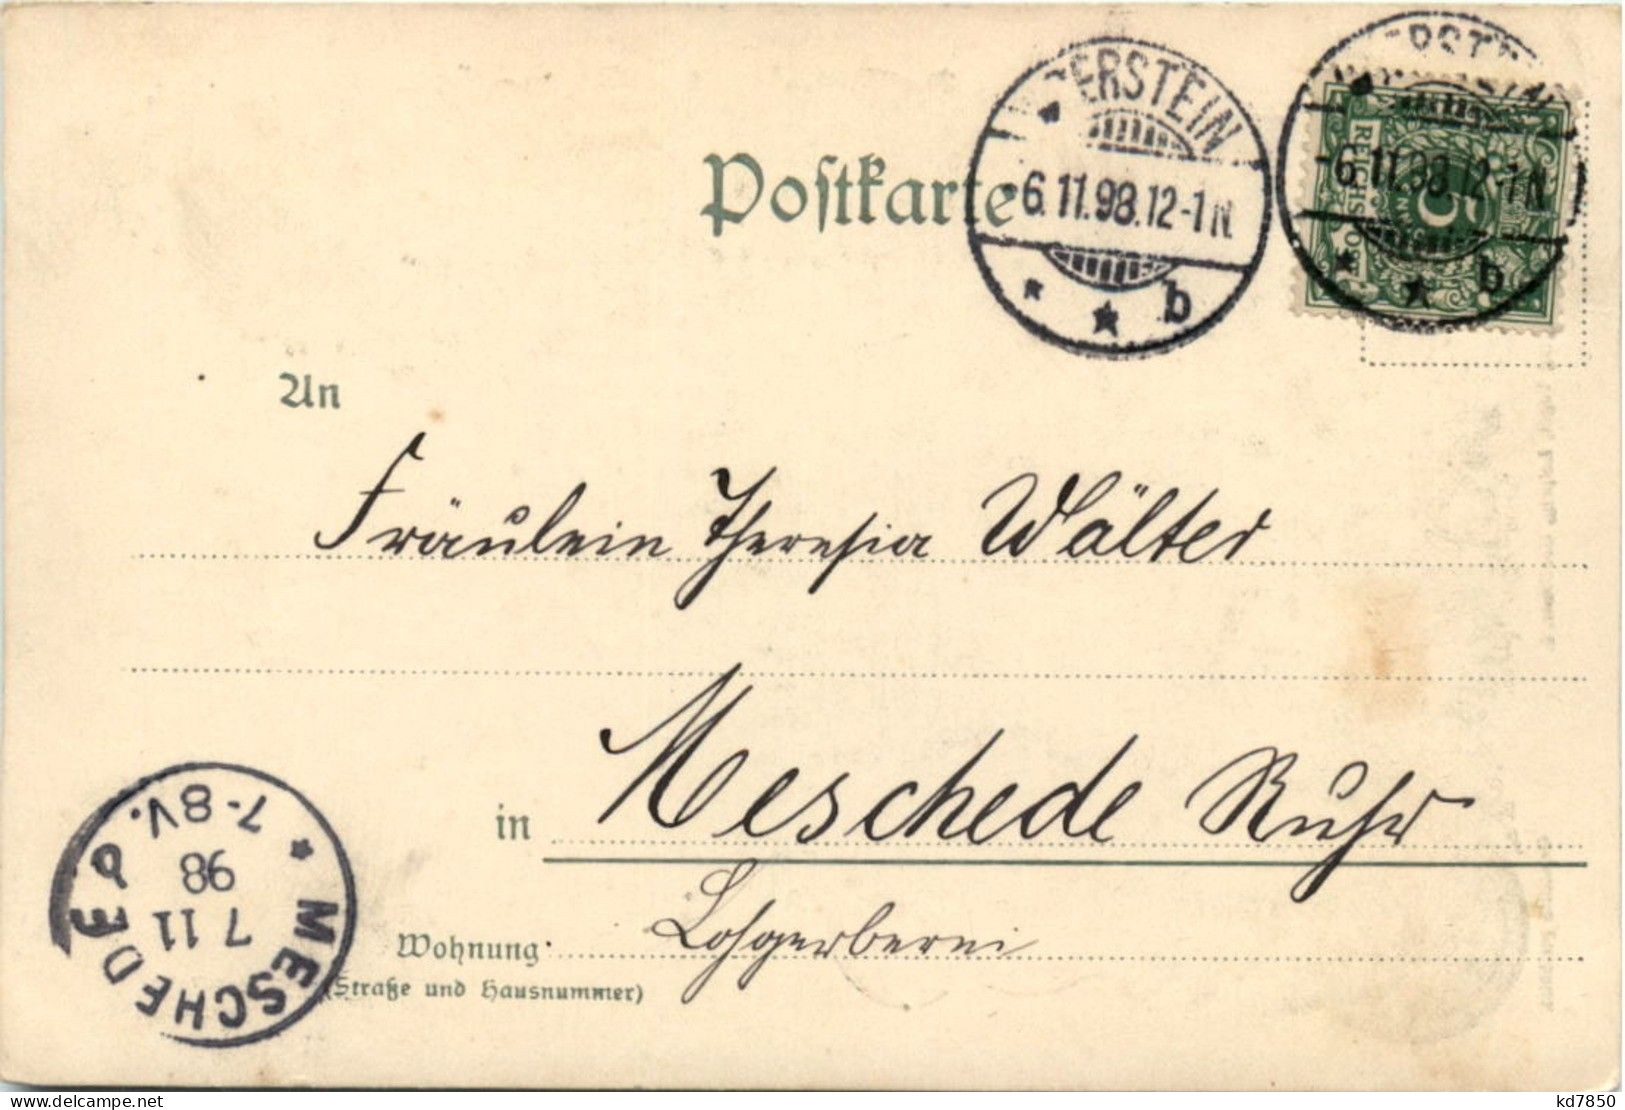 Postkarte
ERSTEIN
-6.11.98.12-1N.
b
ERSTEIN
-6.11.98.12-1N.
b
REICHSPOST
5
An
Fräulein Theresia Wälter
in Meschede Ruhr
Wohnung Lohgerberei
(Straße und Hausnummer)
MESCHEDE
7 11
98
7-8V.
kd7850